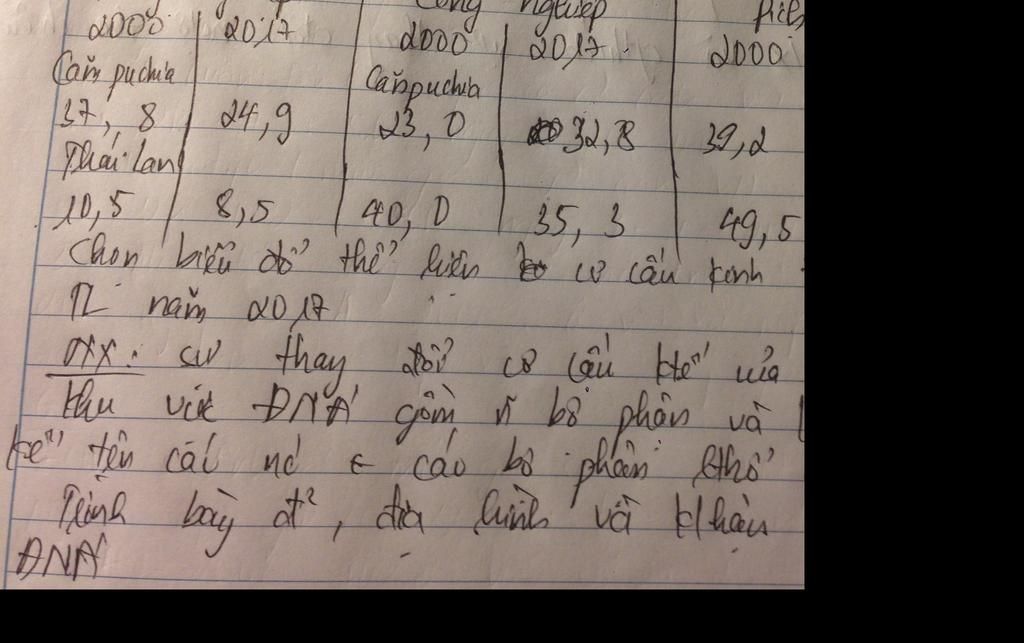 Công nghiệp
2000 2017 2000 2017 2000
Cămpuchia Cămpuchia
37,8 24,9 23,0 32,8 39,2
Thái Lan
10,5 8,5 40,0 35,3 49,5
chọn biểu đồ thể hiện cơ cấu kinh
TL năm 2017
NX: sự thay đổi cơ cấu ktế của
khu vực ĐNÁ gồm bộ phận và
kể tên các các bộ phận
Trình bày đ², địa hình và
ĐNÁ